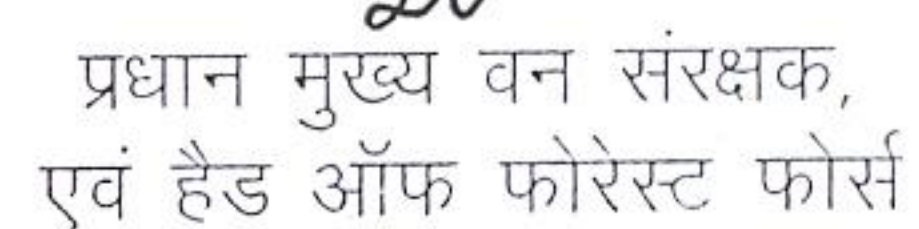 प्रधान मुख्य वन संरक्षक,
एवं हैड ऑफ फोरेस्ट फोर्स